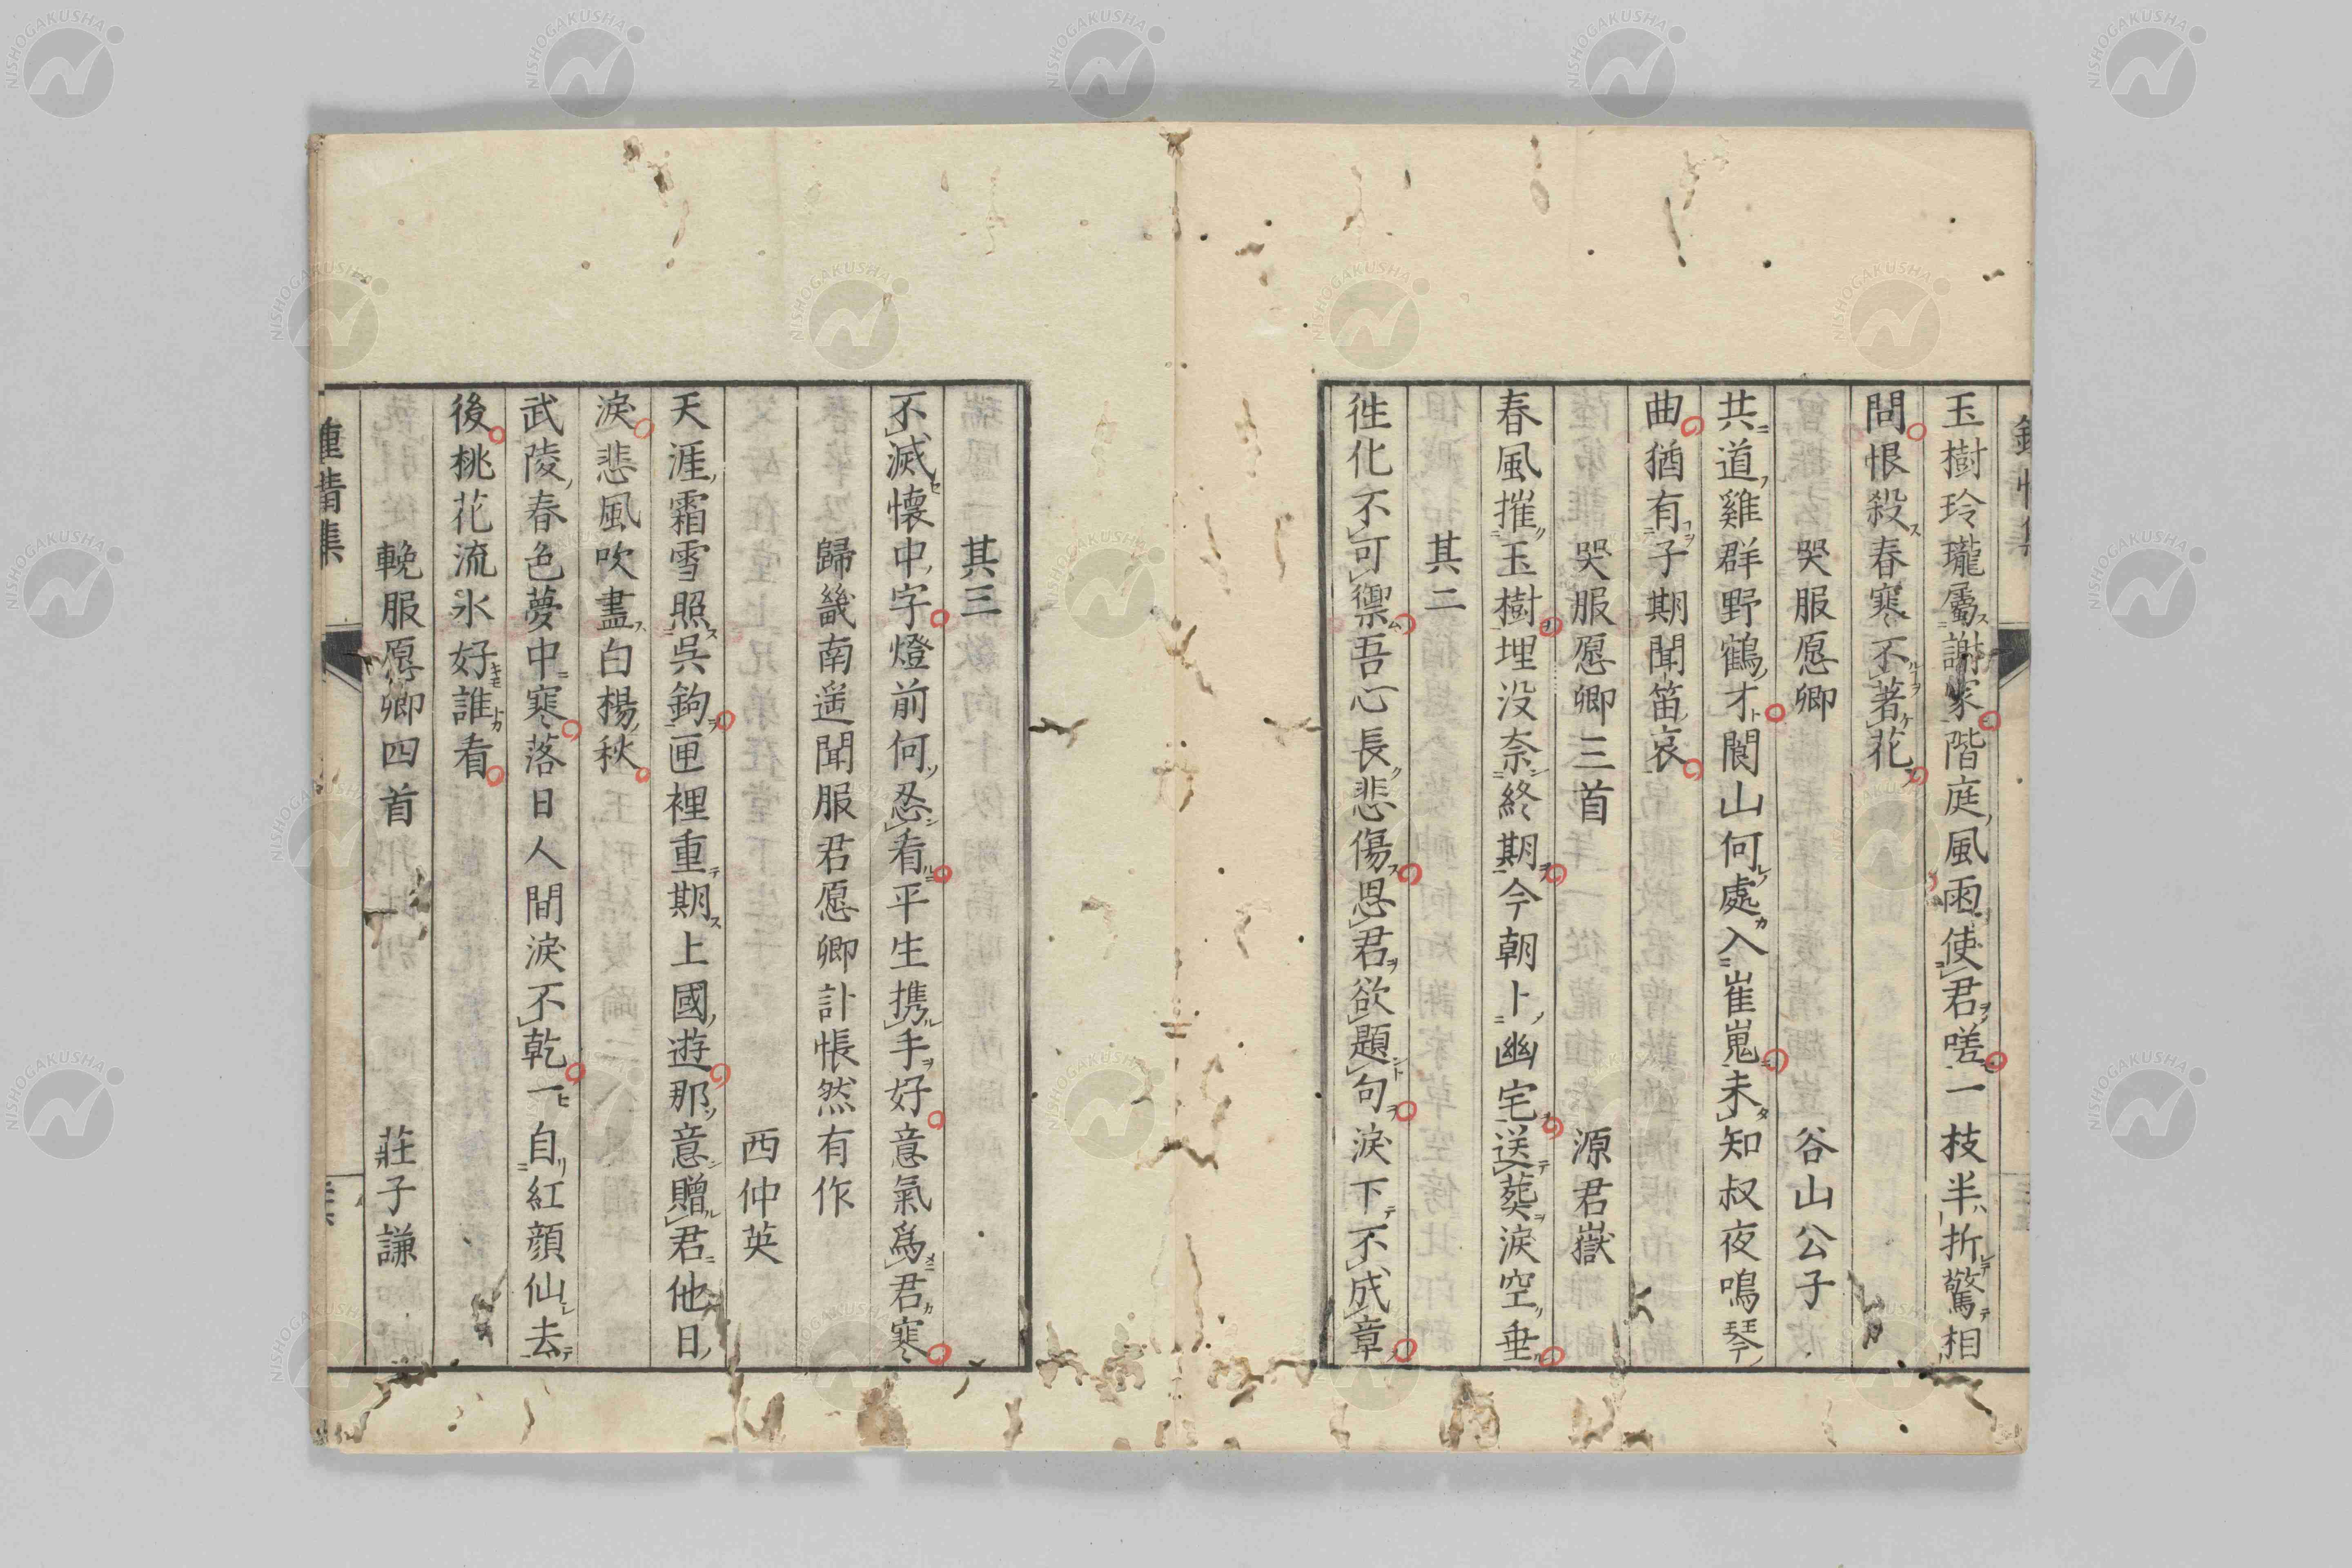 玉樹玲瓏屬謝家階庭風雨使君嗟一枝半折驚相
問恨殺春寒不著花
哭服愿卿 谷山公子
共道雞群野鶴才閬山何處入崔嵬未知叔夜鳴琴
曲猶有子期聞笛哀
哭服愿卿三首 源君嶽
春風摧玉樹埋没奈終期今朝卜幽宅送葬淚空垂
其二
徃化不可禦吾心長悲傷思君欲題句淚下不成章
其三
不滅懷中字燈前何忍看平生携手好意氣爲君寒
歸畿南遥聞服君愿卿訃悵然有作
西仲英
天涯霜雪照吳鉤匣裡重期上國遊那意贈君他日
淚悲風吹盡白楊秋
武陵春色夢中寒落日人間淚不乾一自紅顔仙去
後桃花流水好誰看
輓服愿卿四首 莊子謙
鍾情集